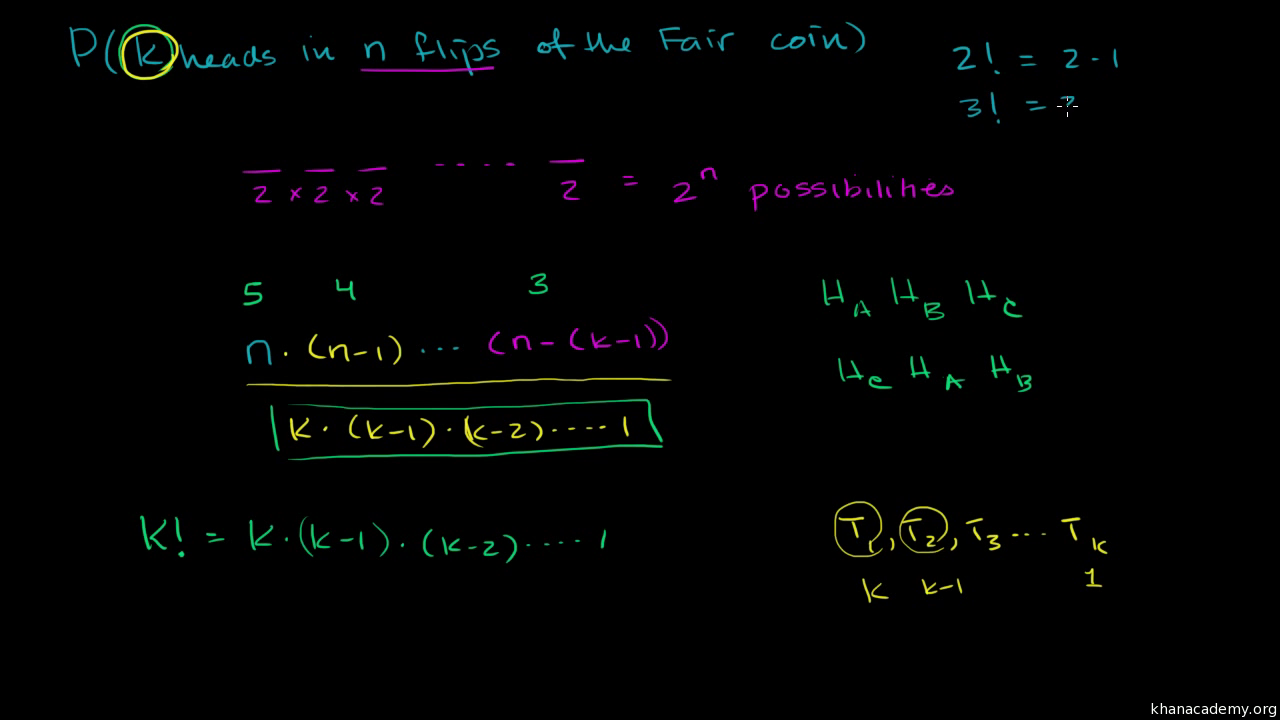 P(k heads in n flips of the Fair coin)
2! = 2 · 1
3! =
2 × 2 × 2 .... 2 = 2ⁿ possibilities
5 4 3
n · (n-1) ... (n-(k-1))
k · (k-1) · (k-2) ..... 1
H_A H_B H_C
H_C H_A H_B
K! = K · (k-1) · (k-2) ..... 1
T₁, T₂, T₃ ... T_k
k k-1 1
khanacademy.org